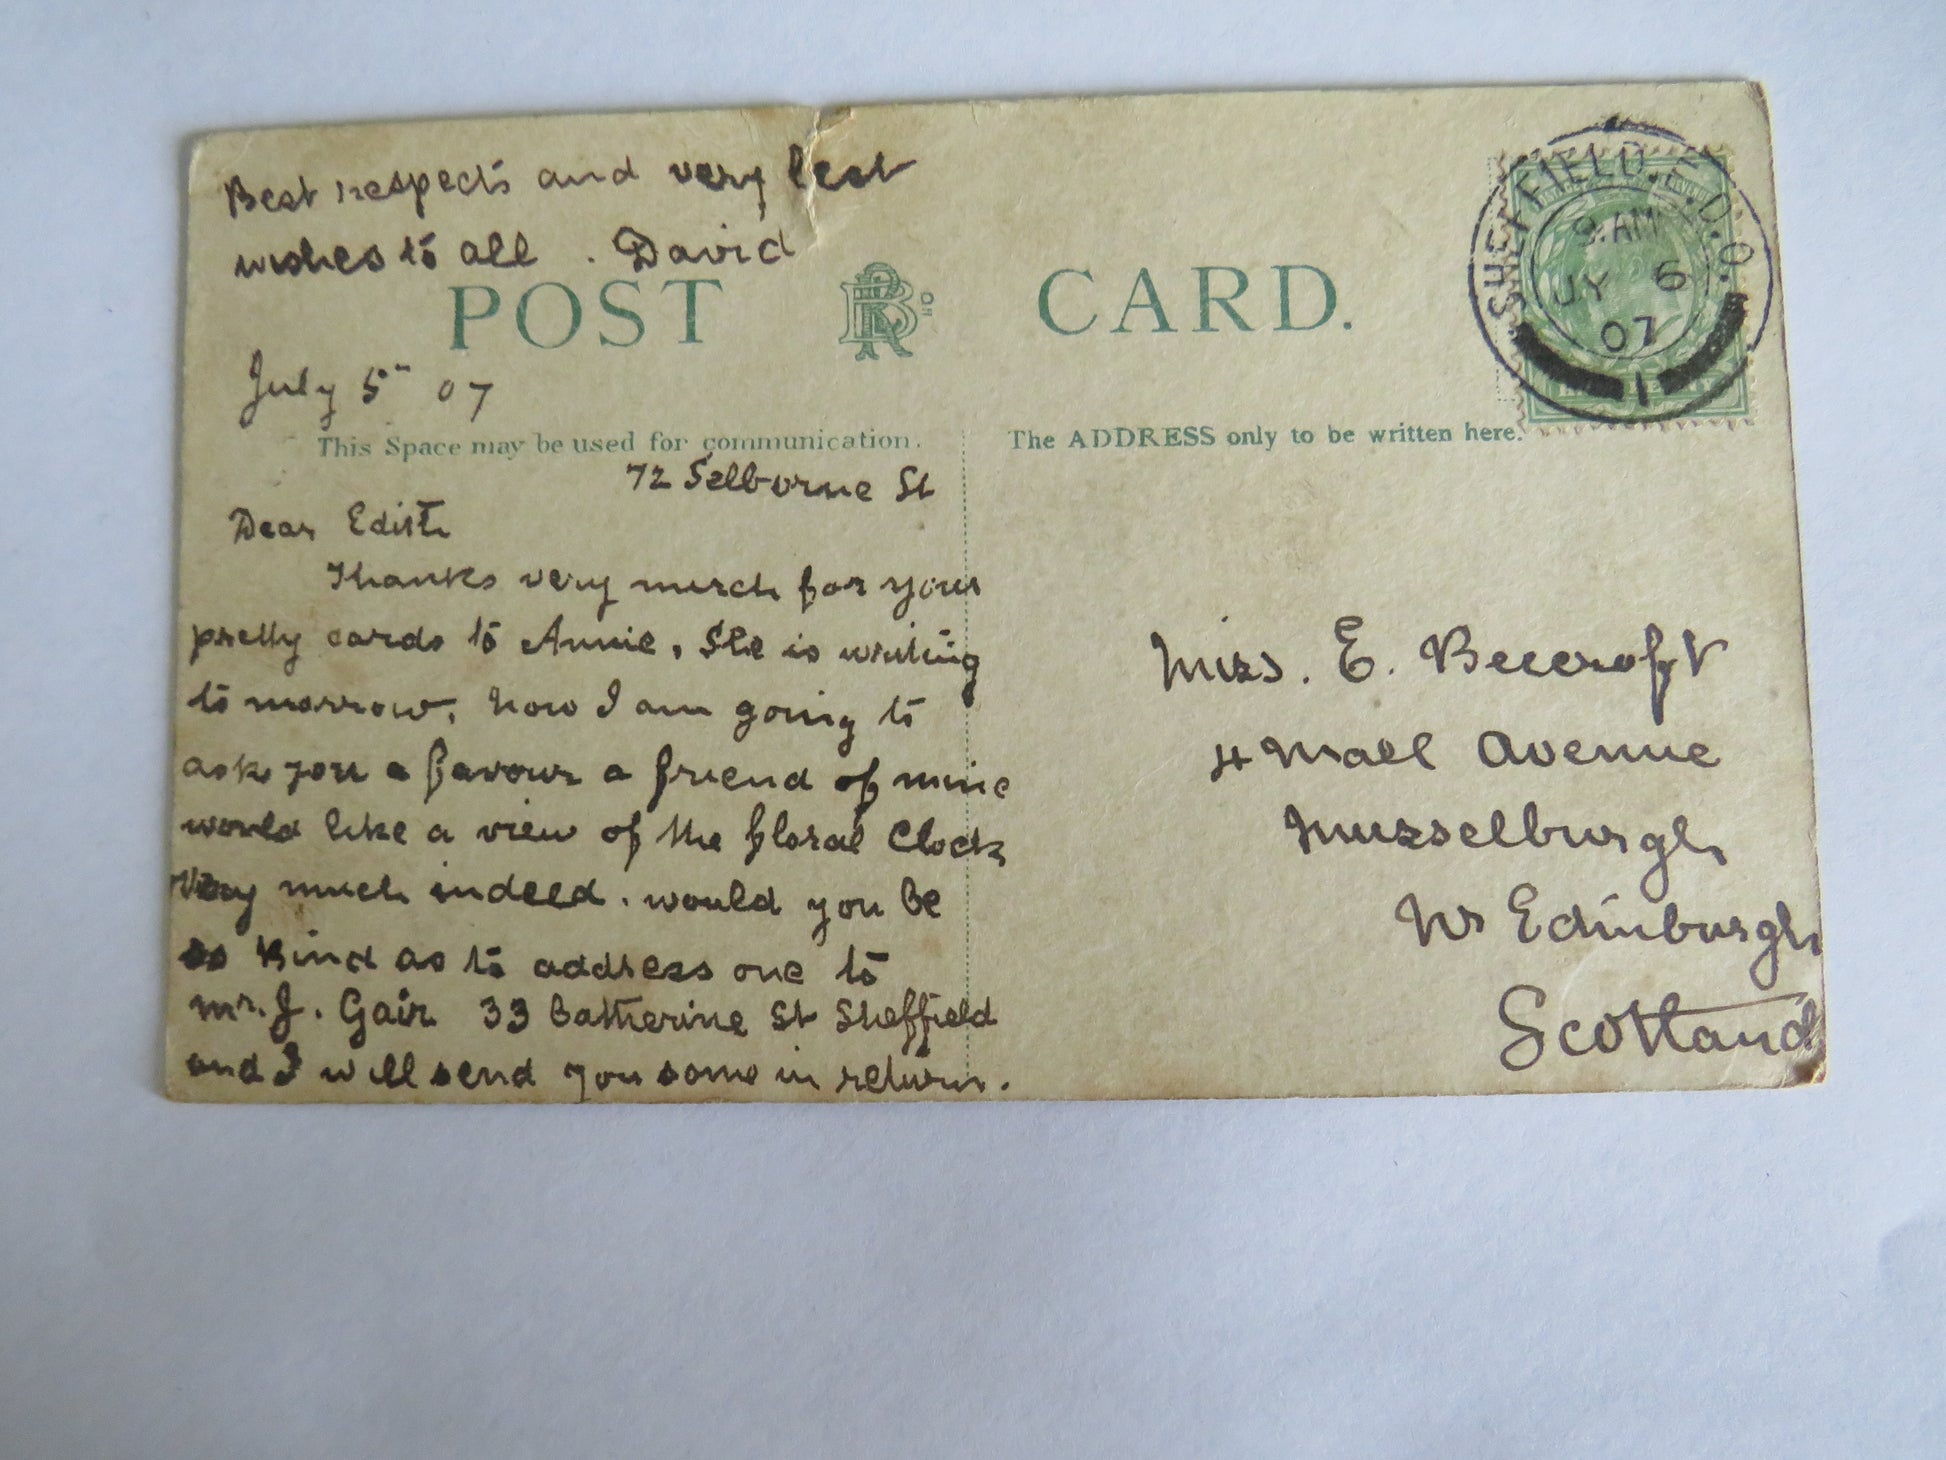 Best respects and very best
wishes to all . David
POST CARD.
July 5th 07
This Space may be used for communication.
72 Selborne St
Dear Edith
Thanks very much for your
pretty cards to Annie, She is writing
to morrow, now I am going to
ask you a favour a friend of mine
would like a view of the floral Clock
very much indeed . would you be
so kind as to address one to
Mr. J. Gair 33 Catherine St Sheffield
and I will send you some in return .
The ADDRESS only to be written here.
SHEFFIELD.F.D.O.
9.AM
JY 6
07
1
Miss. E. Beecroft
4 Mall Avenue
Musselburgh
Nr Edinburgh
Scotland